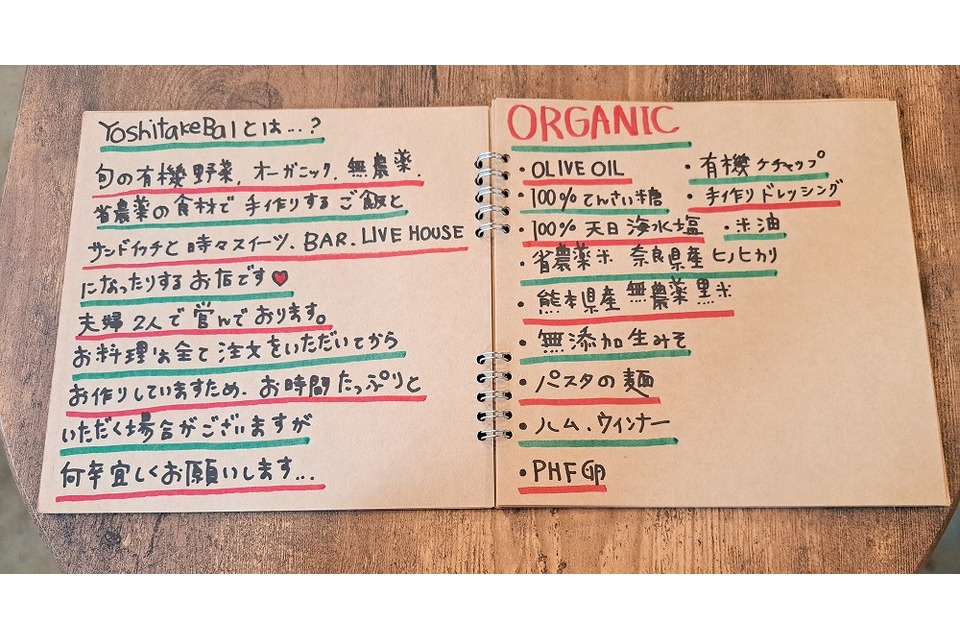 YoshitakeBalとは...?
旬の有機野菜、オーガニック、無農薬、
省農薬の食材で手作りするご飯と
サンドイッチと時々スイーツ、BAR、LIVE HOUSE
になったりするお店です♥
夫婦2人で営んでおります。
お料理は全て注文をいただいてから
お作りしていますため、お時間たっぷりと
いただく場合がございますが
何卒宜しくお願いします...
ORGANIC
・OLIVE OIL
・有機ケチャップ
・100%てんさい糖
・手作りドレッシング
・100%天日海水塩
・米油
・省農薬米 奈良県産ヒノヒカリ
・熊本県産無農薬黒米
・無添加生みそ
・パスタの麺
・ハム、ウィンナー
・PHF卵